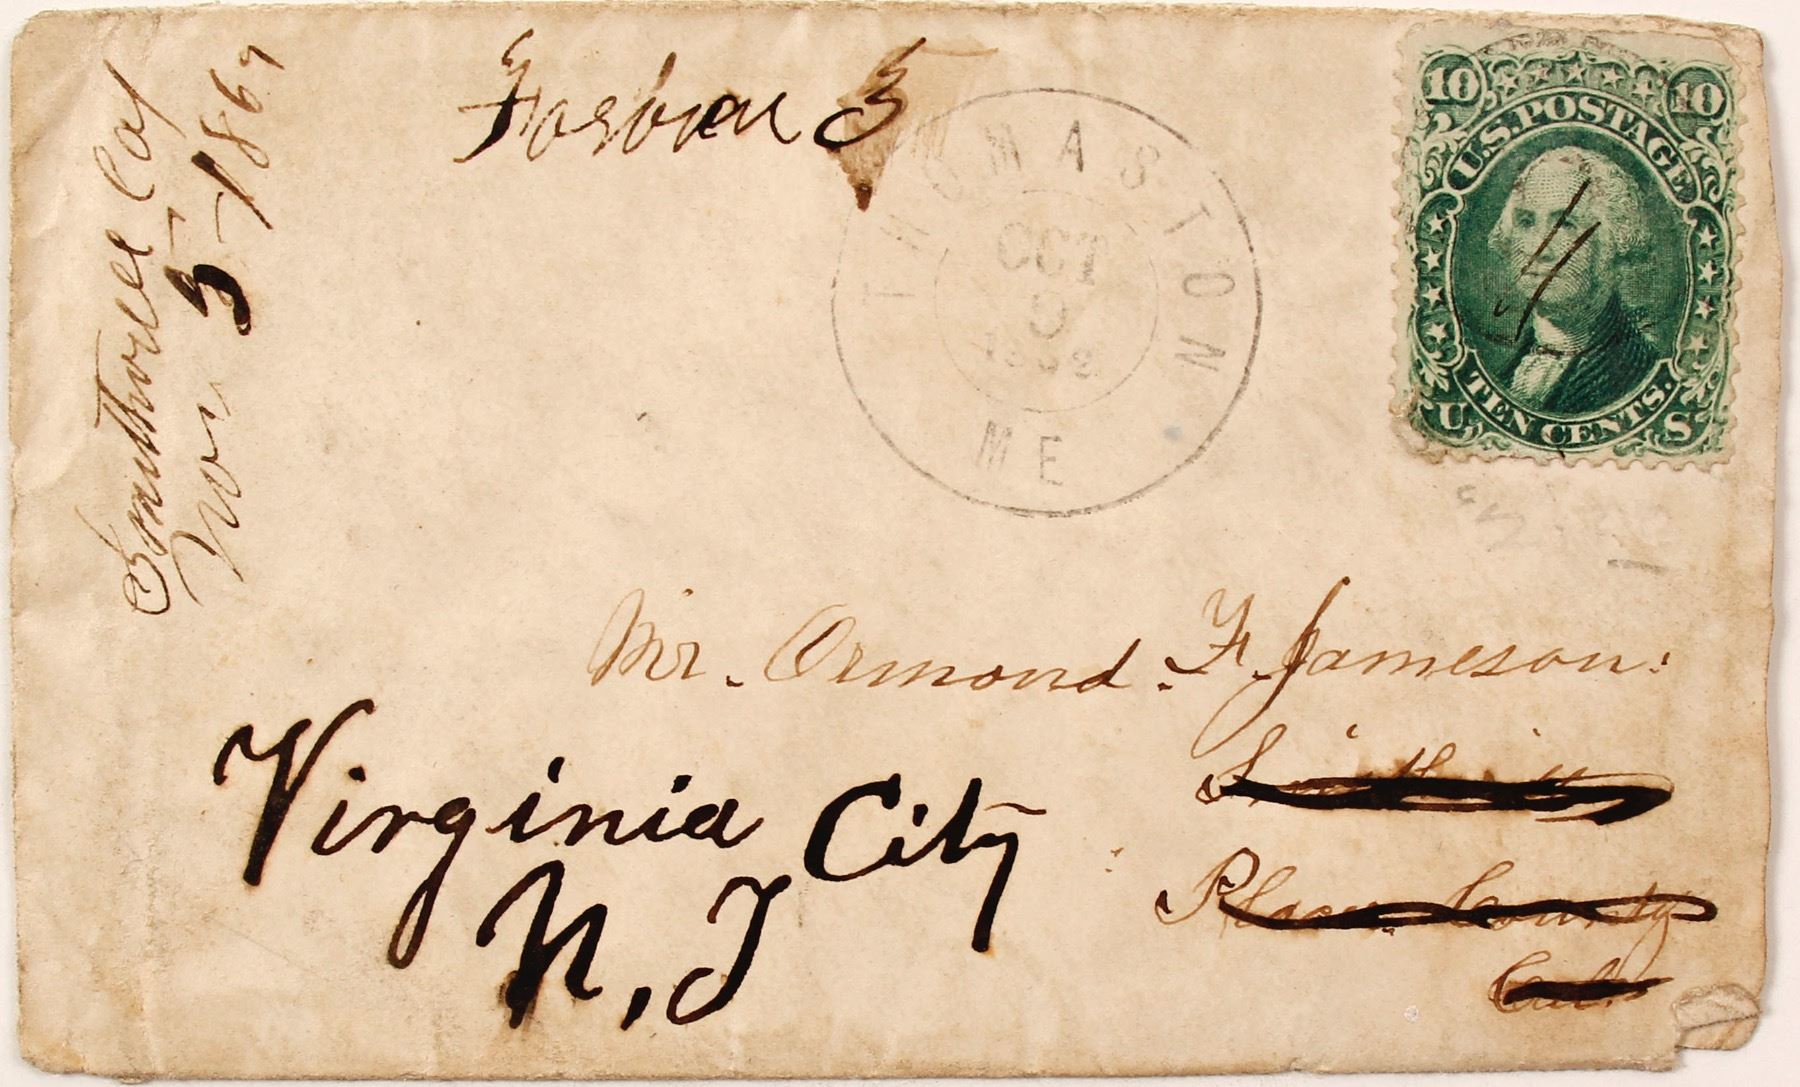 Smithville Cal
Nov 5 - 1862
Forward 3
THOMASTON
OCT
9
1862
ME
10 10
U.S. POSTAGE
TEN CENTS.
U S
Mr. Ormond. F. Jameson.
Smithville
Placer County
Cal.
Virginia City
N. T